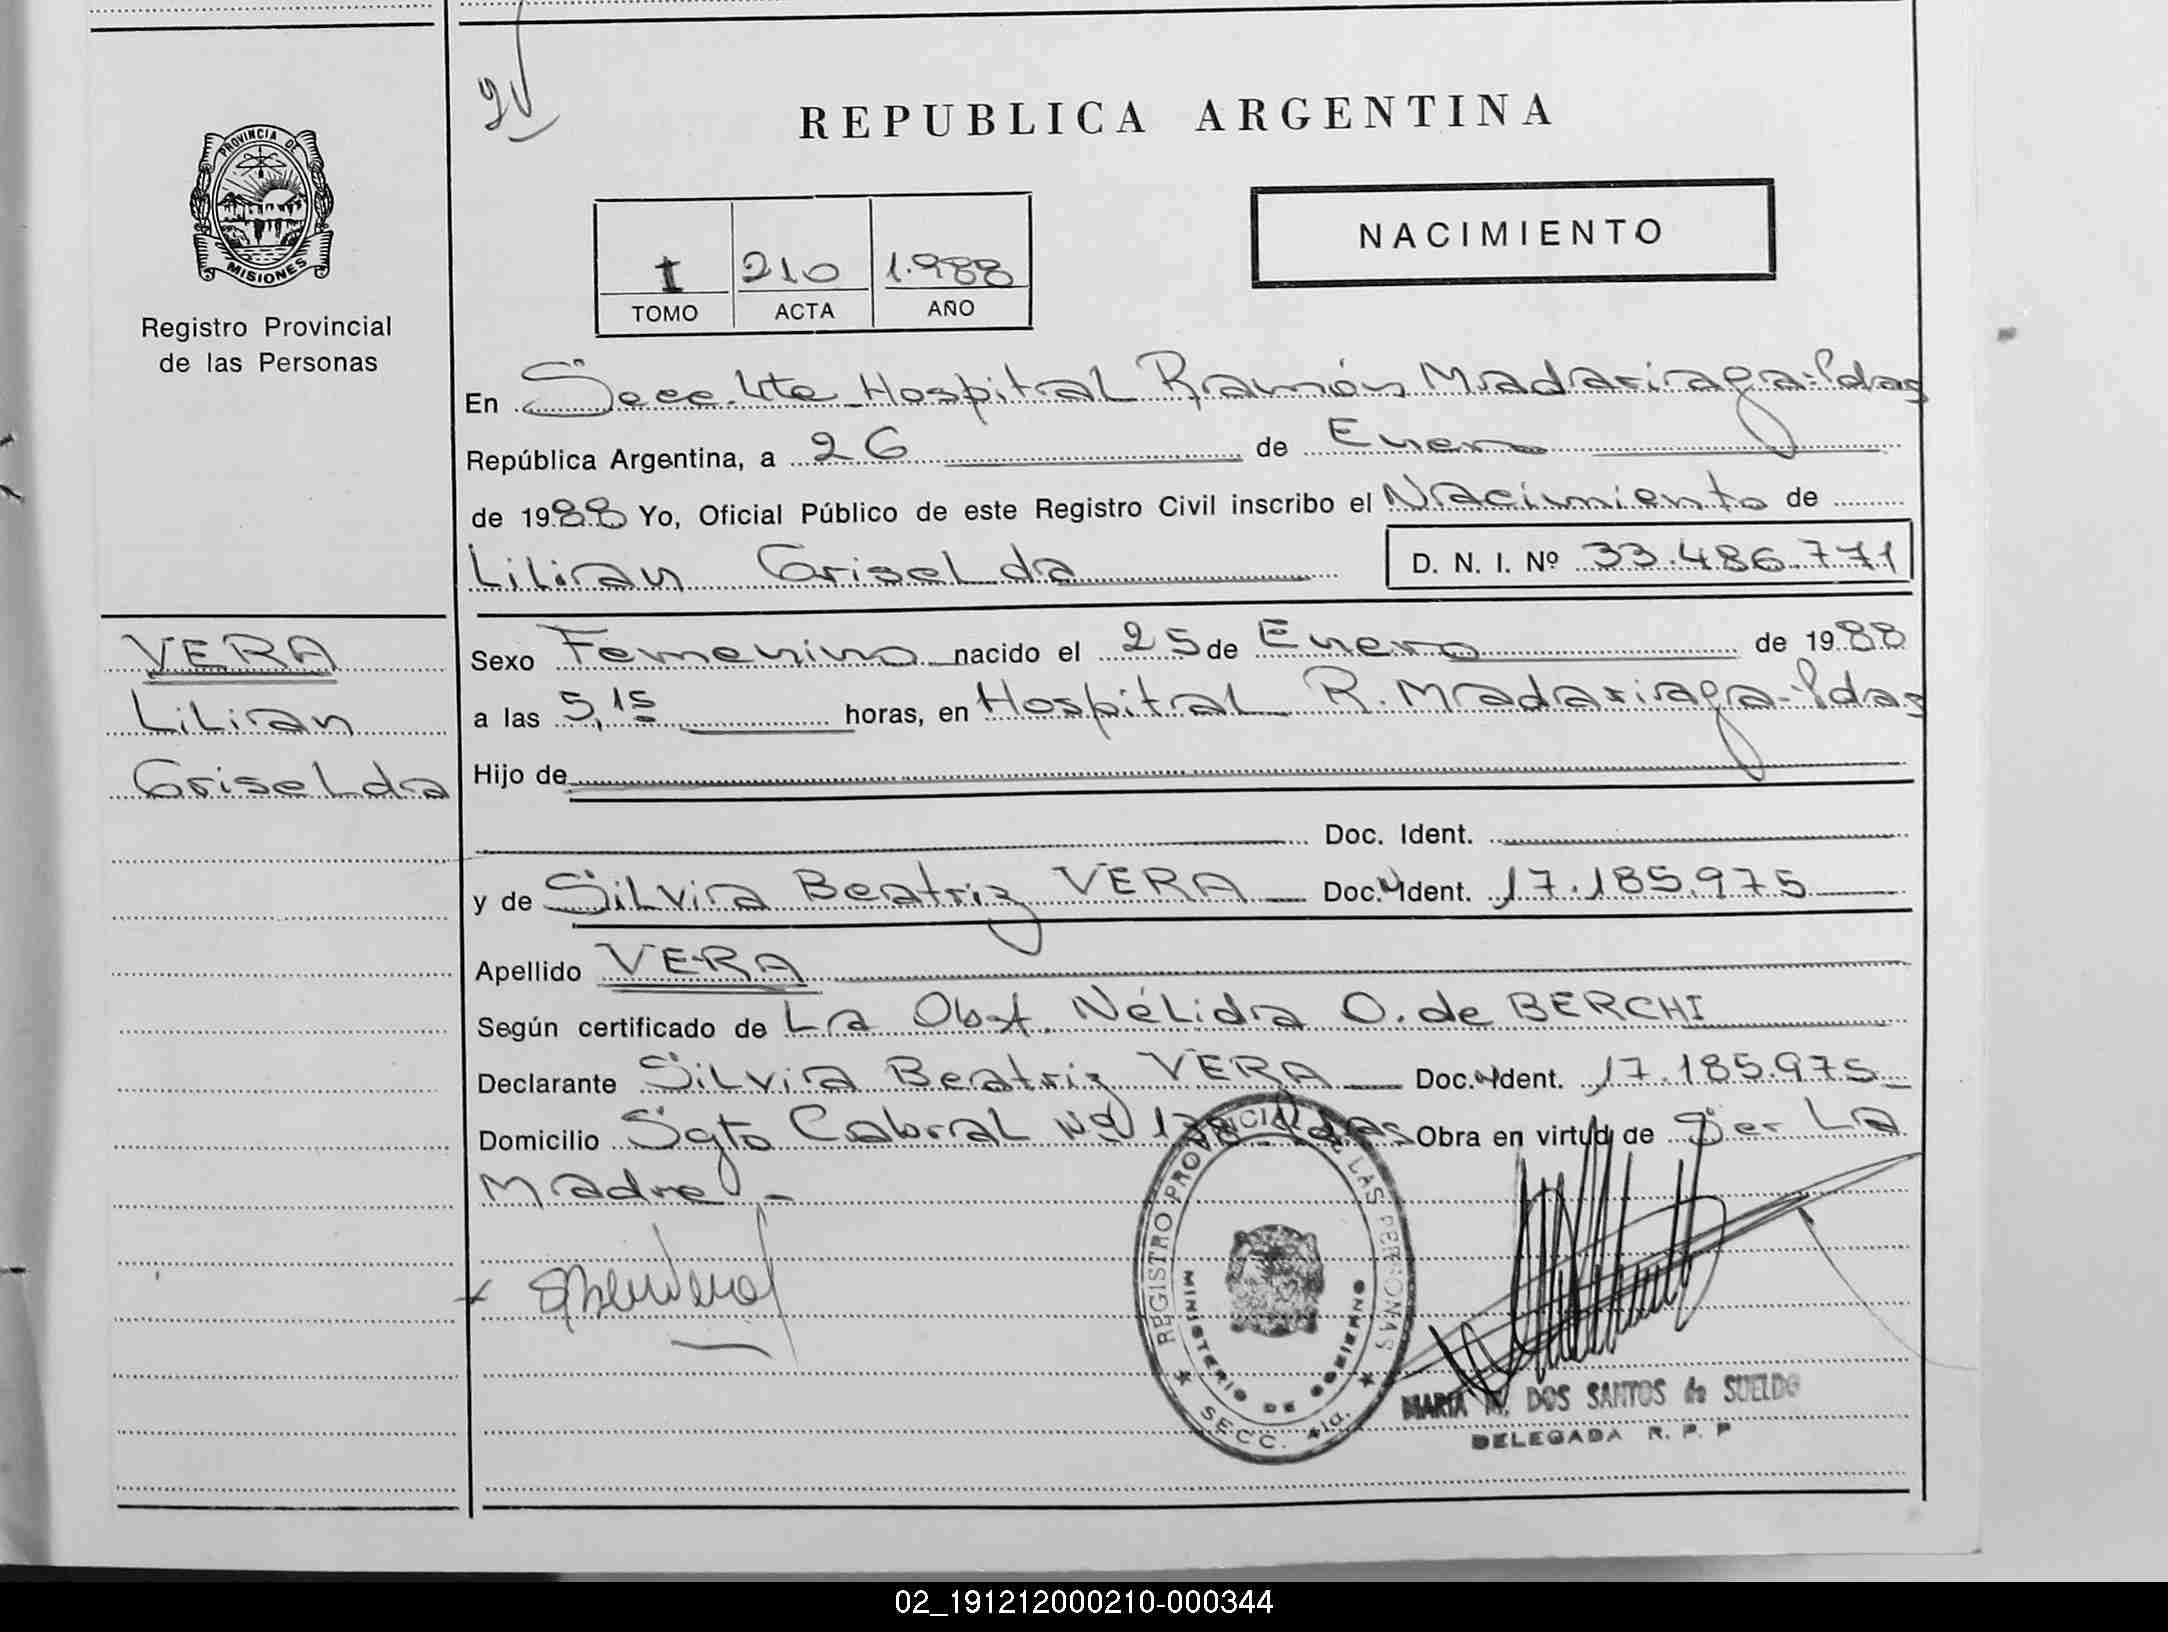 REPUBLICA ARGENTINA
PROVINCIA DE
MISIONES
Registro Provincial
de las Personas
NACIMIENTO
I 210 1.988
TOMO ACTA AÑO
En Secc. 4ta Hospital Ramón Madariaga-Pdas
República Argentina, a 26 de Enero
de 1988 Yo, Oficial Público de este Registro Civil inscribo el Nacimiento de
Lilian Griselda D. N. I. Nº 33.486.771
VERA
Lilian
Griselda
Sexo Femenino nacido el 25 de Enero de 1988
a las 5,15 horas, en Hospital R. Madariaga-Pdas
Hijo de
Doc. Ident.
y de Silvia Beatriz VERA Doc. Ident. 17.185.975
Apellido VERA
Según certificado de La Obst. Nélida O. de BERCHI
Declarante Silvia Beatriz VERA Doc. Ident. 17.185.975
Domicilio Sgto Cabral Nº Pdas Obra en virtud de Ser La
Madre -
REGISTRO PROVINCIAL DE LAS PERSONAS
MINISTERIO DE GOBIERNO
SECC. 4ta.
MARIA DOS SANTOS de SUELDO
DELEGADA R. P. P
02_191212000210-000344